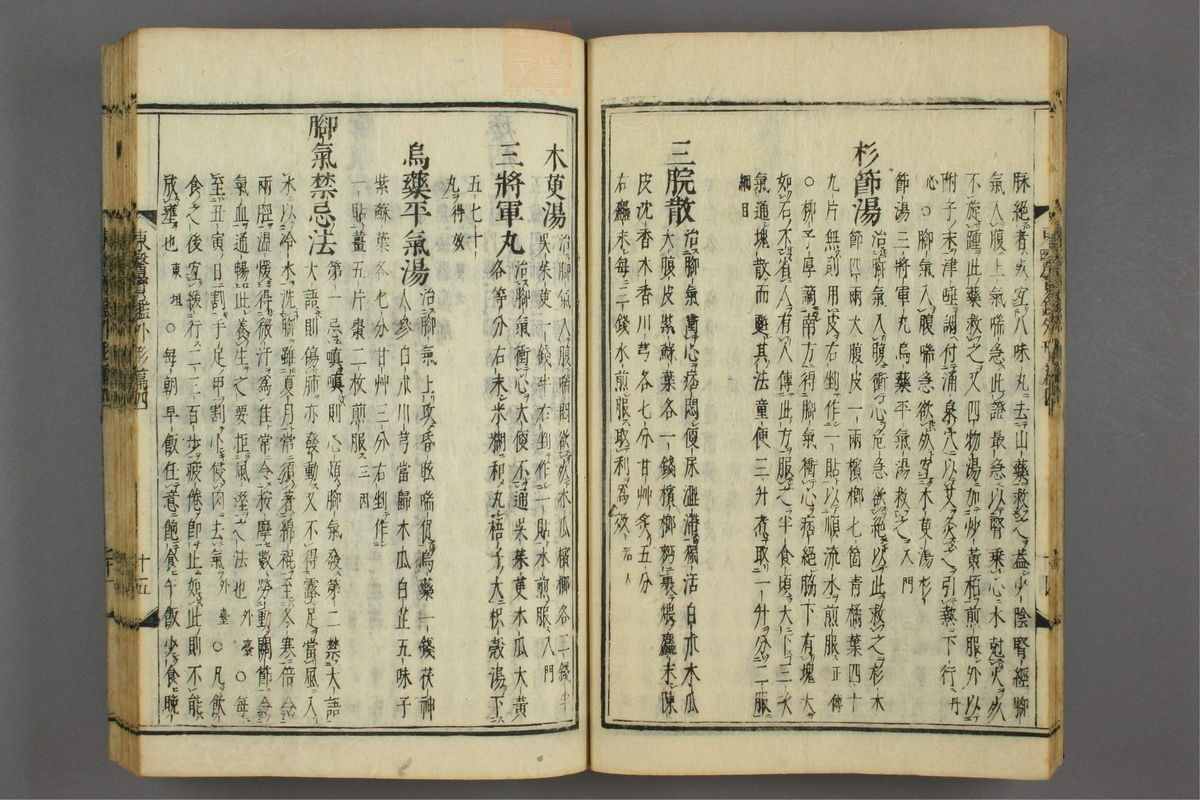 脉絕者亦宜八味丸去山藥救之益少陰腎經脚
氣入腹上氣喘急此證最急以腎乘心水尅火故
不旋踵此藥救之又四物湯加炒黃栢煎服外以
附子末津唾調付涌泉穴以艾灸之引熱下行丹
心○脚氣入腹喘急欲死宜木萸湯杉
節湯三將軍丸烏藥平氣湯救之入門
杉節湯 治脚氣入腹衝心危急欲絕以此救之杉木
節四兩大腹皮一兩檳榔七箇青橘葉四十
九片無則用皮右剉作一貼以順流水煎服正傳
○柳子厚謫南方得脚氣衝心痞絕脇下有塊大
如石不省人有人傳此方服之半食頃大下三次
氣通塊散而甦其法童便三升煮取一升分二服
綱目
三脘散 治脚氣衝心痞悶便尿澁滯獨活白朮木瓜
大腹皮紫蘇葉各一錢檳榔麪裹煨麤末陳
皮沈香木香川芎各七分甘艸炙五分
右麤末每三錢水煎服取利爲效
木萸湯 治脚氣入腹喘悶欲死木瓜檳榔各二錢半
吳茱萸一錢半右剉作一貼水煎服入門
三將軍丸 治脚氣衝心大便不通吳茱萸木瓜大黃
各等分右末米糊和丸梧子大枳殼湯下
五七十
丸得效
烏藥平氣湯 治脚氣上攻昏眩喘促烏藥一錢茯神
人參白朮川芎當歸木瓜白芷五味子
紫蘇葉各七分甘艸三分右剉作
一貼薑五片棗二枚煎服三因
脚氣禁忌法 第一忌嗔嗔則心煩脚氣發第二禁大語
大語則傷肺亦發動又不得露足當風入
水以冷水洗脚雖夏月常須著綿褌至冬寒倍令
兩脛溫煖得微汗爲佳常令按摩數勞動關節令
氣血通暢此養生之要拒風濕之法也外臺○每
至丑寅日割手足甲割少侵肉去氣外臺○凡飮
食之後宜緩行二三百步疲倦卽止如此則不能
放壅也東垣○每朝早飯任意飽食午飯少食晩
東醫寶鑑外形篇四
十五